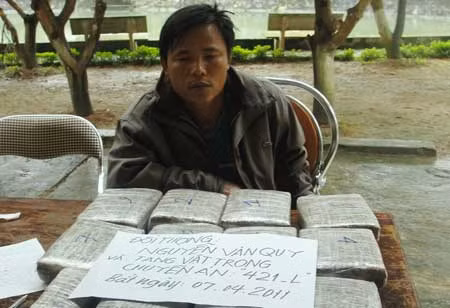 ĐỐI TƯỢNG:
NGUYỄN VĂN QUÝ
VÀ: TANG VẬT TRONG
CHUYÊN ÁN: "421-L"
Bắt ngày: 07.04.2011